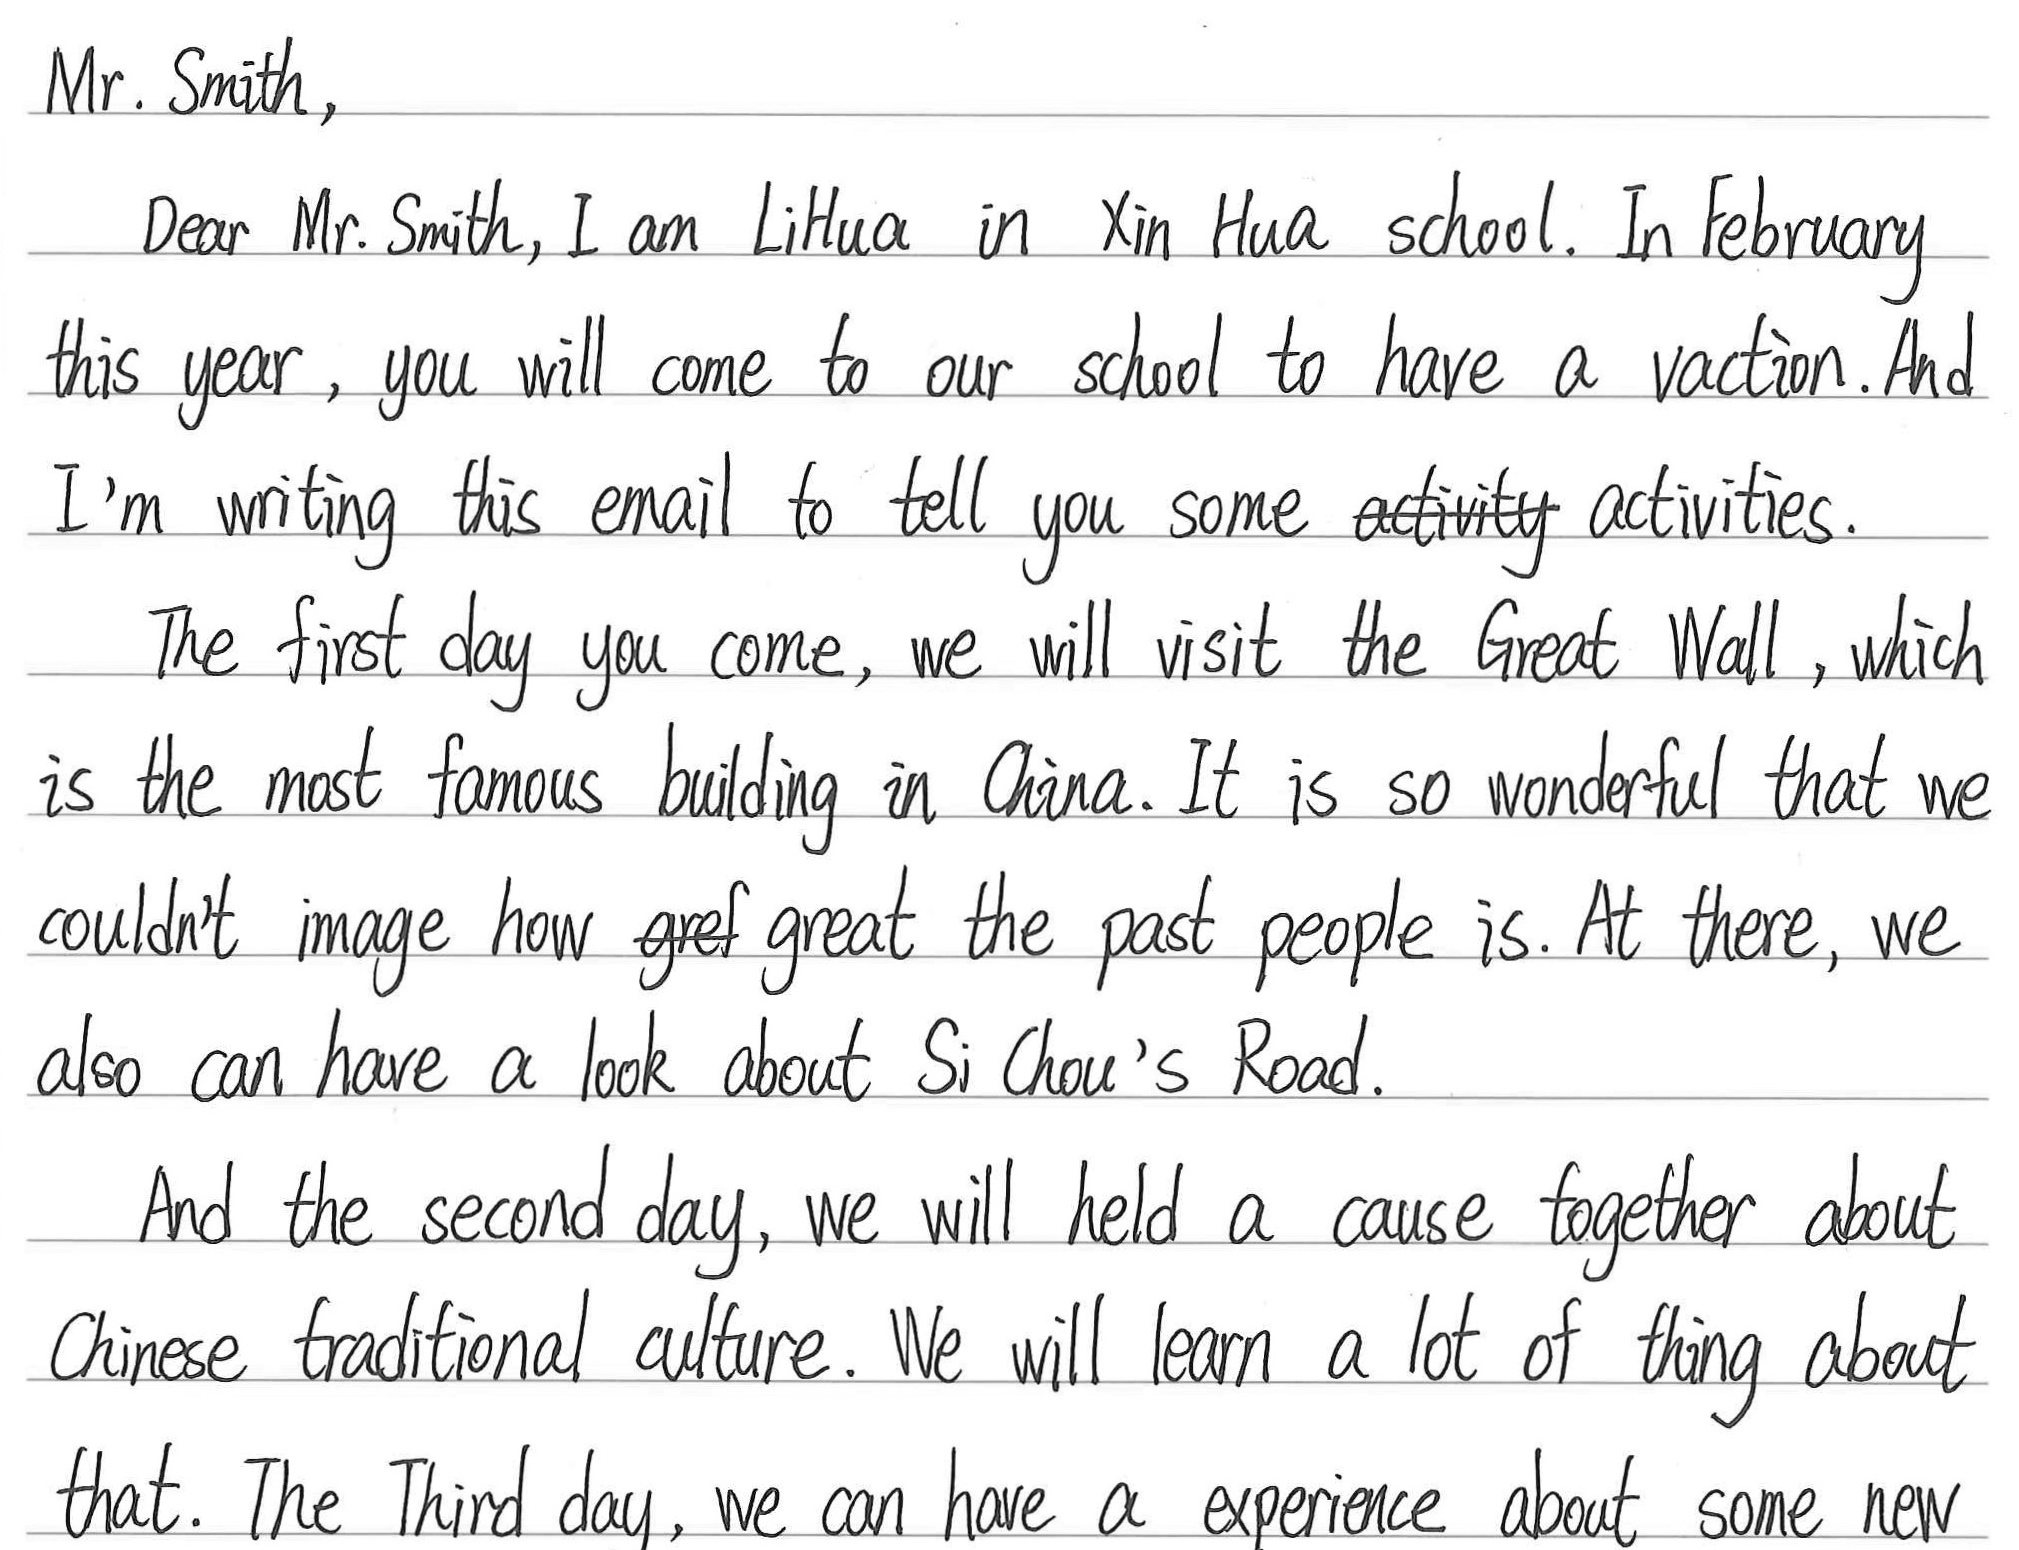 Mr. Smith,
Dear Mr. Smith, I am LiHua in Xin Hua school. In February
this year, you will come to our school to have a vaction. And
I'm writing this email to tell you some activity activities.
The first day you come, we will visit the Great Wall, which
is the most famous building in China. It is so wonderful that we
couldn't image how gref great the past people is. At there, we
also can have a look about Si Chou's Road.
And the second day, we will held a cause together about
Chinese traditional culture. We will learn a lot of thing about
that. The Third day, we can have a experience about some new